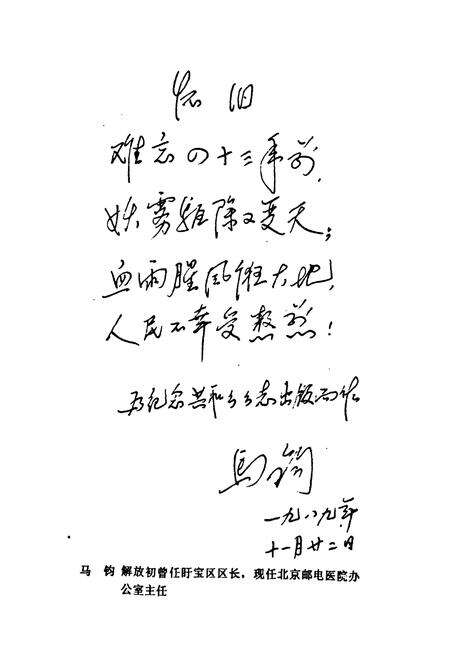 怀旧
难忘四十三年前，
妖雾驱除又变天；
血雨腥风征大地，
人民不幸受熬煎！
为纪念共和乡乡志出版而作
马钧
一九八九年
十一月廿二日
马 钧 解放初曾任盱宝区区长，现任北京邮电医院办
公室主任